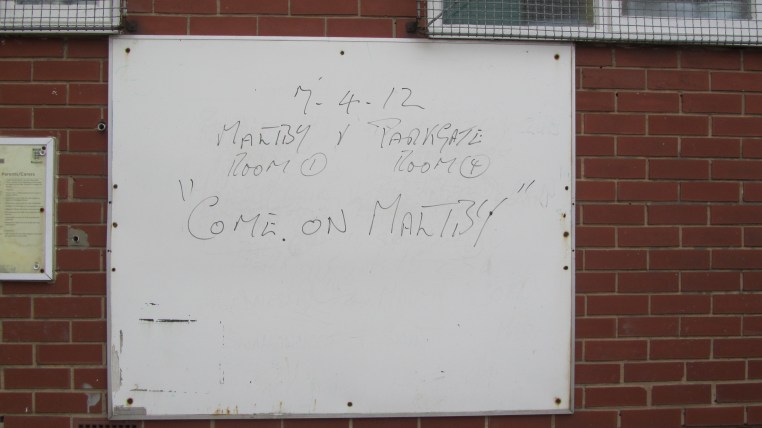 7-4-12
MALTBY V PARKGATE
ROOM 1 ROOM 4
"COME. ON MALTBY"